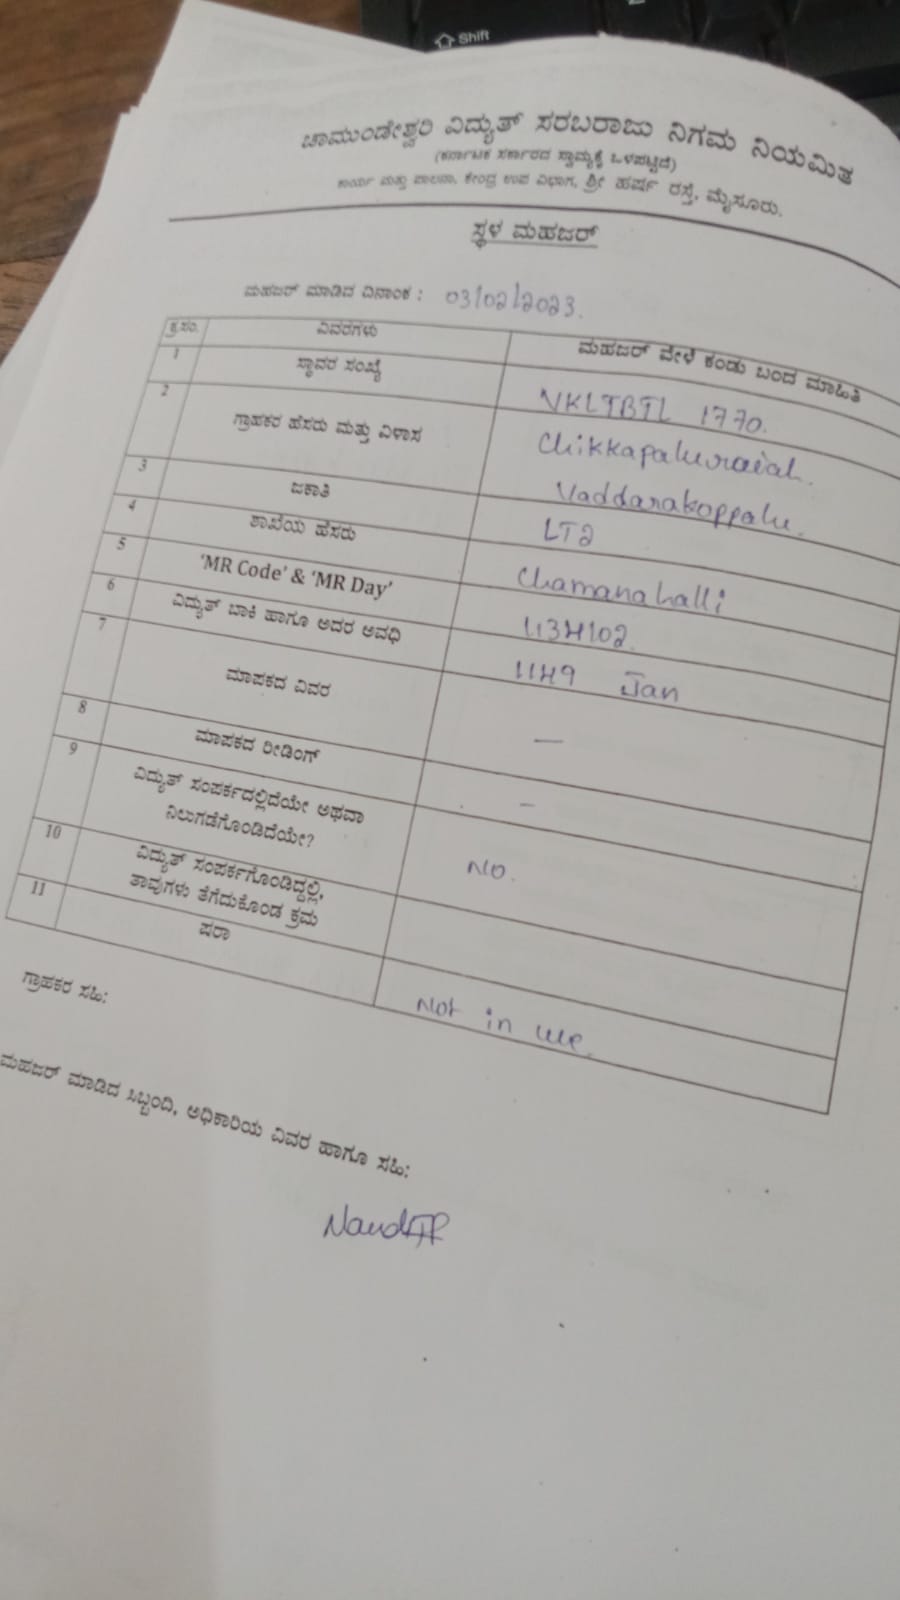 Shift
ಚಾಮುಂಡೇಶ್ವರಿ ವಿದ್ಯುತ್ ಸರಬರಾಜು ನಿಗಮ ನಿಯಮಿತ
(ಕರ್ನಾಟಕ ಸರ್ಕಾರದ ಸ್ವಾಮ್ಯಕ್ಕೆ ಒಳಪಟ್ಟಿದೆ)
ಕಾರ್ಯ ಮತ್ತು ಪಾಲನಾ, ಕೇಂದ್ರ ಉಪ ವಿಭಾಗ, ಶ್ರೀ ಹರ್ಷ ರಸ್ತೆ, ಮೈಸೂರು.
ಸ್ಥಳ ಮಹಜರ್
ಮಹಜರ್ ಮಾಡಿದ ದಿನಾಂಕ : 03/02/2023.
ಕ್ರ.ಸಂ. ವಿವರಗಳು ಮಹಜರ್ ವೇಳೆ ಕಂಡು ಬಂದ ಮಾಹಿತಿ
1 ಸ್ಥಾವರ ಸಂಖ್ಯೆ VKLTBTL 1770.
2 ಗ್ರಾಹಕರ ಹೆಸರು ಮತ್ತು ವಿಳಾಸ Chikkapaluraiah.
Vaddarakoppalu.
3 ಜಕಾತಿ LT2
4 ಶಾಖೆಯ ಹೆಸರು Chamanahalli
5 'MR Code' & 'MR Day'
6 ವಿದ್ಯುತ್ ಬಾಕಿ ಹಾಗೂ ಅದರ ಅವಧಿ 1149 Jan
7 ಮಾಪಕದ ವಿವರ —
8 ಮಾಪಕದ ರೀಡಿಂಗ್ –
9 ವಿದ್ಯುತ್ ಸಂಪರ್ಕದಲ್ಲಿದೆಯೇ ಅಥವಾ
ನಿಲುಗಡೆಗೊಂಡಿದೆಯೇ? NO.
10 ವಿದ್ಯುತ್ ಸಂಪರ್ಕಗೊಂಡಿದ್ದಲ್ಲಿ,
ತಾವುಗಳು ತೆಗೆದುಕೊಂಡ ಕ್ರಮ
11 ಷರಾ Not in use.
ಗ್ರಾಹಕರ ಸಹಿ:
ಮಹಜರ್ ಮಾಡಿದ ಸಿಬ್ಬಂದಿ, ಅಧಿಕಾರಿಯ ವಿವರ ಹಾಗೂ ಸಹಿ: